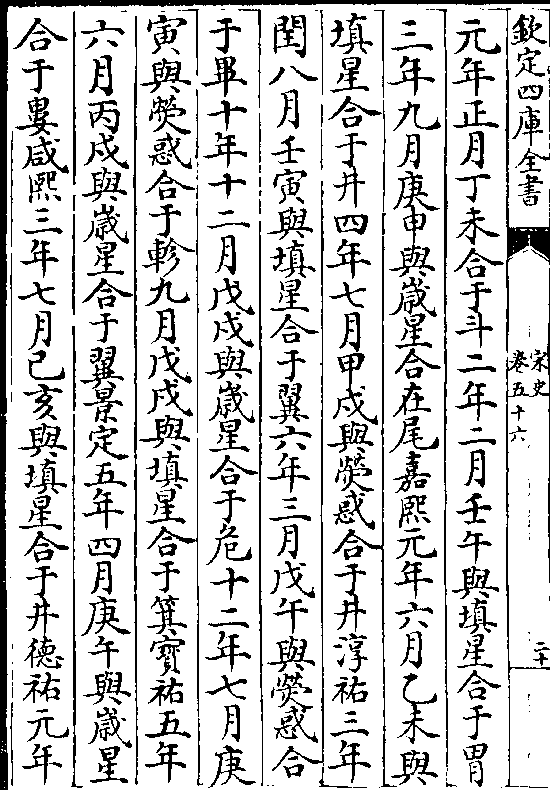 欽定四庫全書
宋史
卷五十六
二十
元年正月丁未合于斗二年二月壬午與填星合于胃
三年九月庚申與歲星合在尾嘉熙元年六月乙未與
填星合于井四年七月甲戌與熒惑合于井淳祐三年
閏八月壬寅與填星合于翼六年三月戊午與熒惑合
于畢十年十二月戊戌與歲星合于危十二年七月庚
寅與熒惑合于軫九月戊戌與填星合于箕寶祐五年
六月丙戌與歲星合于翼景定五年四月庚午與歲星
合于婁咸熙三年七月己亥與填星合于井德祐元年